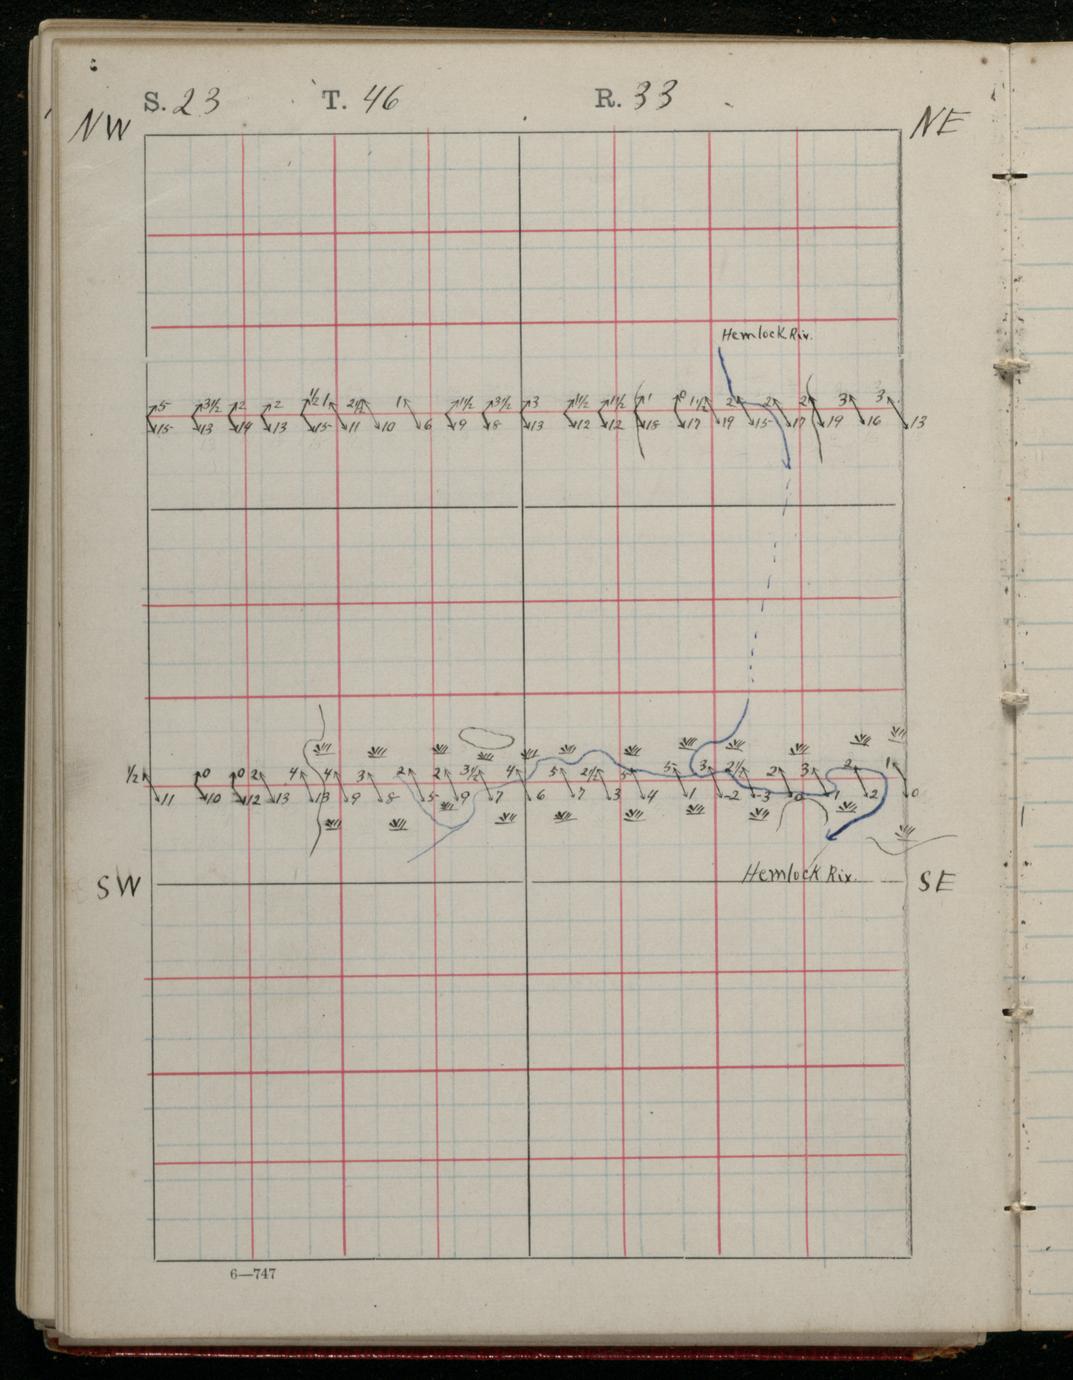 S. 23 T. 46 R. 33
NW NE
Hemlock Riv.
5 3½ 2 2 ½ 1 2½ 1 1½ 3½ 3 1½ 1½ 1 0 1½ 2 2 2 3 3
15 13 14 13 15 11 10 6 9 8 13 12 12 18 17 19 15 17 19 16 13
½ 0 0 2 4 4 3 2 2 3½ 4 5 2½ 5 5 3 2½ 2 3 2 1
11 10 12 13 13 9 8 5 9 7 6 7 3 4 1 -2 -3 0 1 2 0
Hemlock Riv.
SW SE
6—747